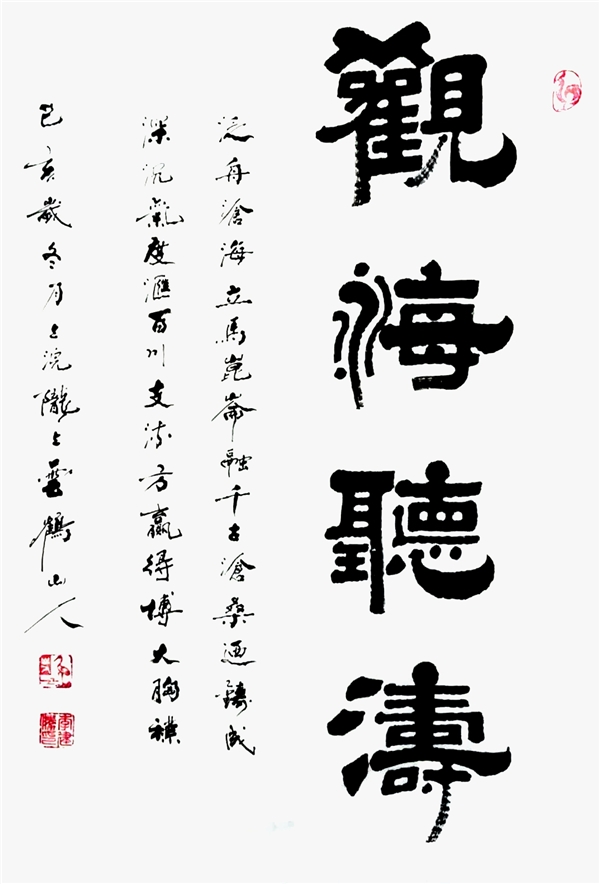 觀海聽濤
泛舟滄海立馬崑崙融千古滄桑迺鑄成
深沉氣度滙百川支流方贏得博大胸襟
己亥歲冬月上浣隴上雲鶴山人